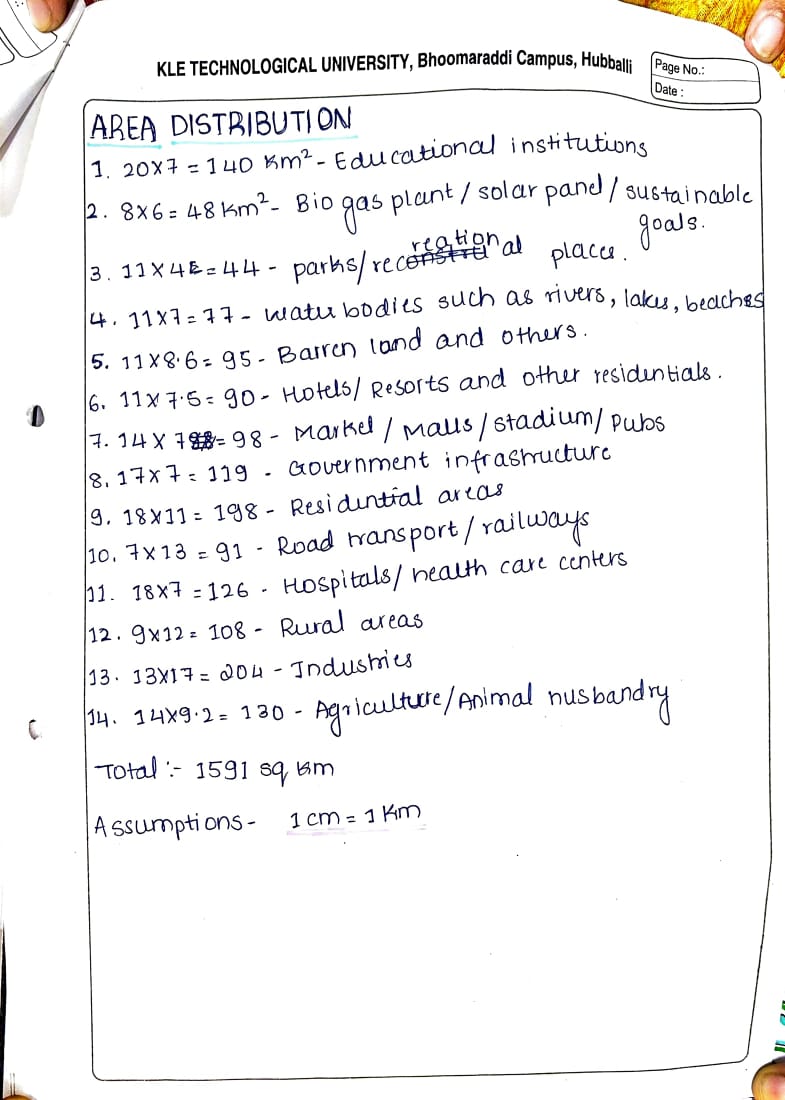 KLE TECHNOLOGICAL UNIVERSITY, Bhoomaraddi Campus, Hubballi
Page No.:
Date :
AREA DISTRIBUTION
1. 20x7 = 140 Km² - Educational institutions
2. 8x6 = 48 Km² - Bio gas plant / solar panel / sustainable goals.
3. 11x4 = 44 - parks/recreational places.
4. 11x7 = 77 - Water bodies such as rivers, lakes, beaches
5. 11x8.6 = 95 - Barren land and others.
6. 11x7.5 = 90 - Hotels/ Resorts and other residentials.
7. 14x7 = 98 - Market / Malls / stadium / Pubs
8. 17x7 = 119 - Government infrastructure
9. 18x11 = 198 - Residential areas
10. 7x13 = 91 - Road transport / railways
11. 18x7 = 126 - Hospitals/ health care centers
12. 9x12 = 108 - Rural areas
13. 13x17 = 204 - Industries
14. 14x9.2 = 130 - Agriculture/Animal husbandry
Total :- 1591 sq km
Assumptions - 1 cm = 1 Km